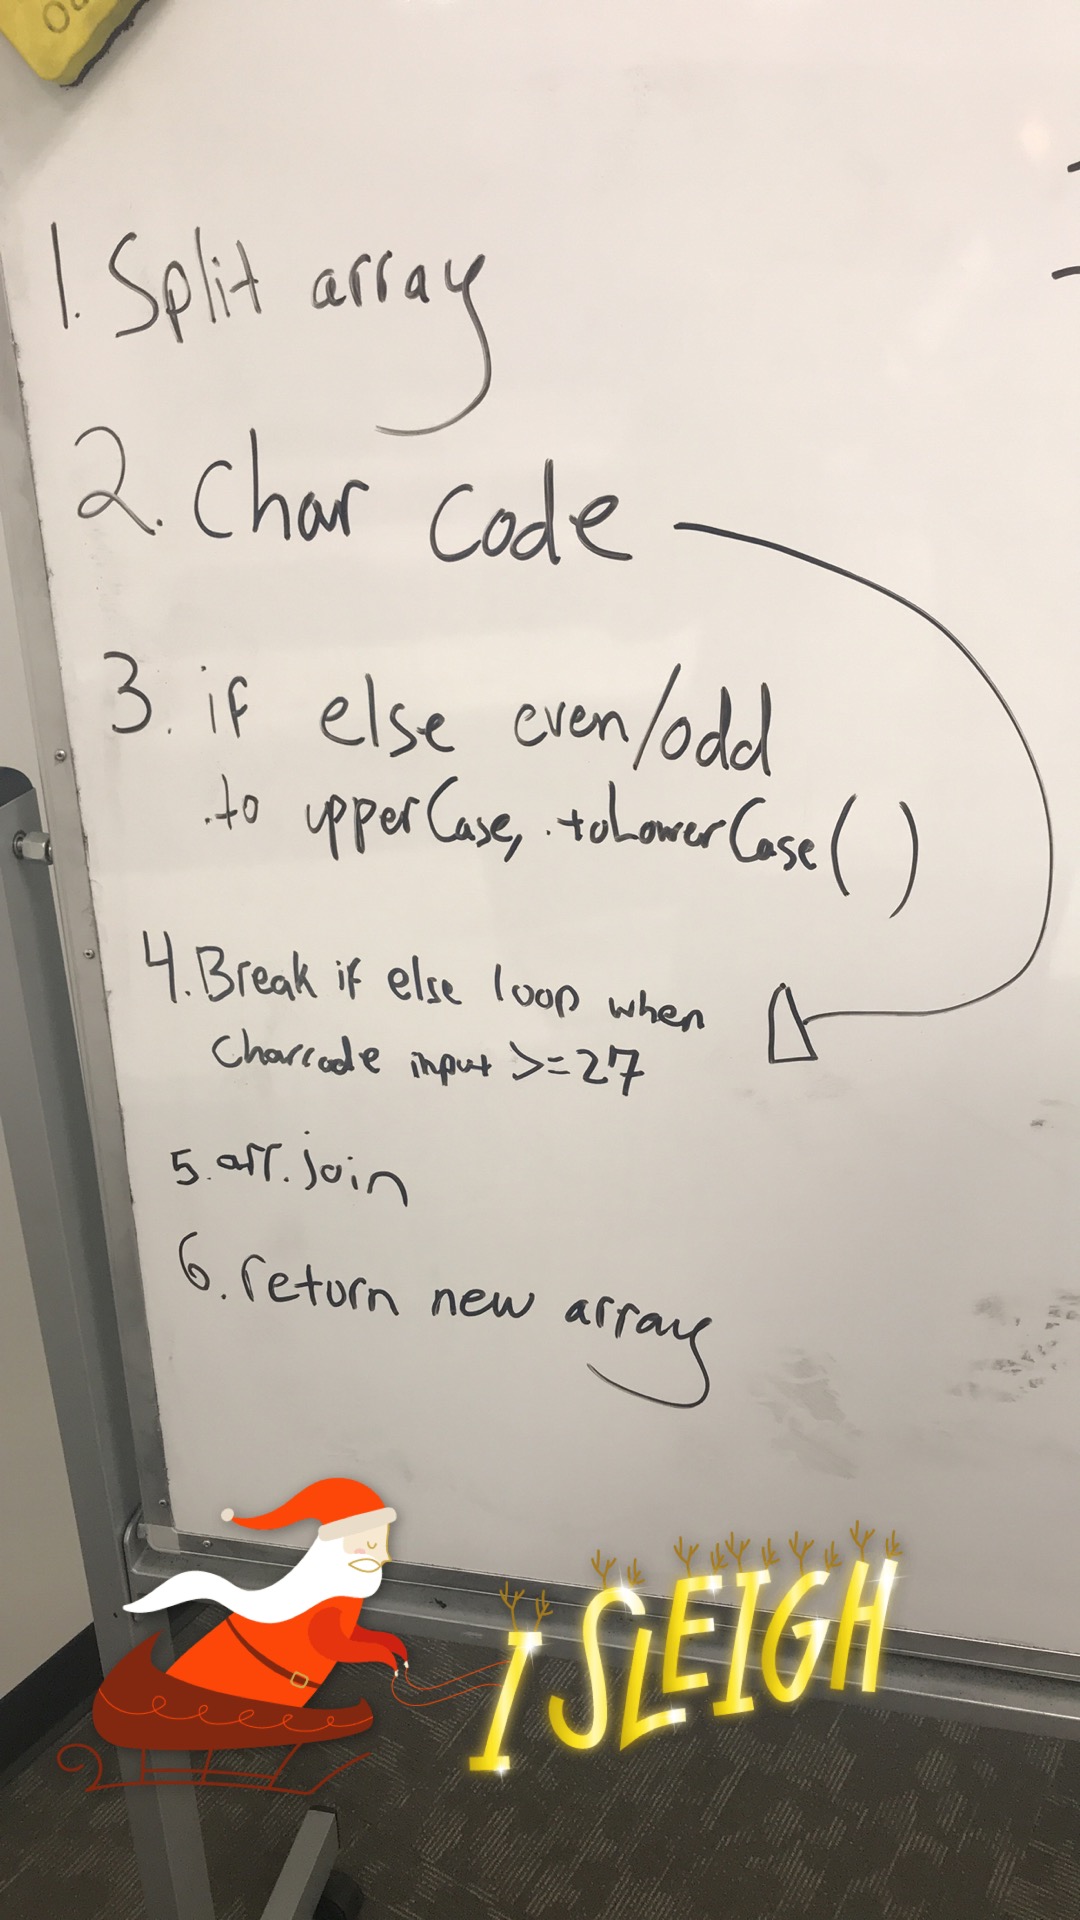 1. Split array
2. Char Code
3. if else even/odd
.to upperCase, .toLowerCase()
4. Break if else loop when
Charcode input >=27
5. arr.join
6. return new array
I SLEIGH